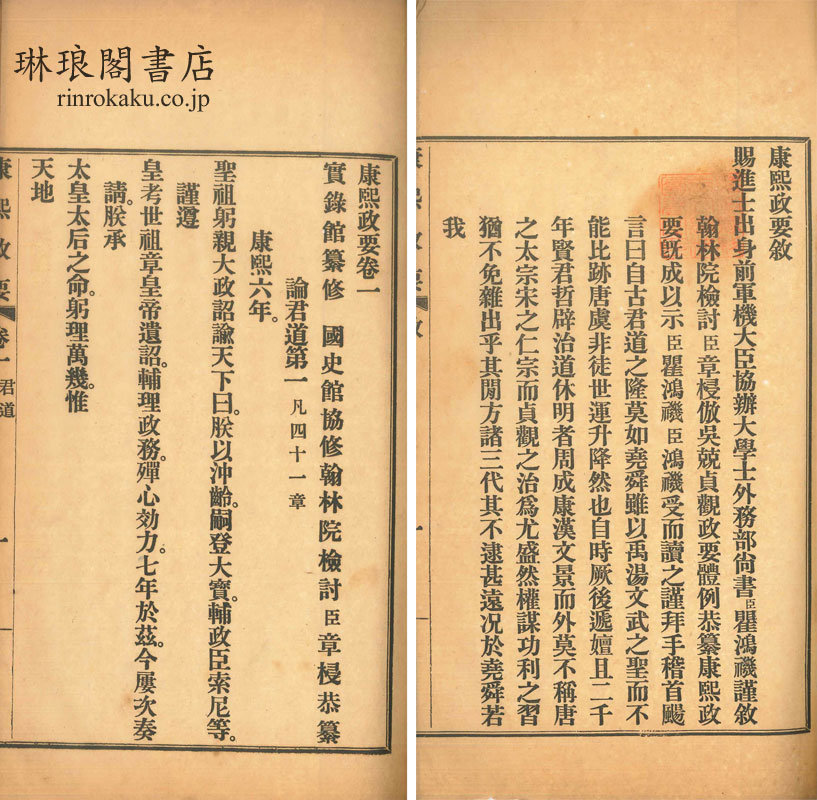 康熙政要敘
賜進士出身前軍機大臣協辦大學士外務部尚書臣瞿鴻禨謹敘
翰林院檢討臣章梫倣吳兢貞觀政要體例恭纂康熙政
要旣成以示臣瞿鴻禨臣鴻禨受而讀之謹拜手稽首颺
言曰自古君道之隆莫如堯舜雖以禹湯文武之聖而不
能比跡唐虞非徒世運升降然也自時厥後遞嬗且二千
年賢君哲辟治道休明者周成康漢文景而外莫不稱唐
之太宗宋之仁宗而貞觀之治爲尤盛然權謀功利之習
猶不免雜出乎其閒方諸三代其不逮甚遠况於堯舜若
我
琳琅閣書店
rinrokaku.co.jp
康熙政要卷一
實錄館纂修 國史館協修翰林院檢討臣章梫恭纂
論君道第一 凡四十一章
康熙六年。
聖祖躬親大政詔諭天下曰。朕以沖齡。嗣登大寶。輔政臣索尼等。
謹遵
皇考世祖章皇帝遺詔。輔理政務。殫心効力。七年於茲。今屢次奏
請。朕承
太皇太后之命。躬理萬幾。惟
天地
康熙政要 卷一 君道 一